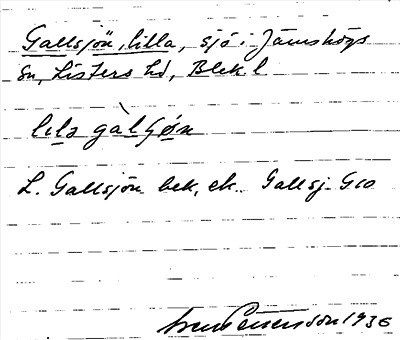 Gallsjön, lilla, sjö i Jämshögs
Sn, Listers hd, Blek l
lilə gàlʃøn
L. Gallsjön bek, ek. Gallsj. G10
Petersson 1936